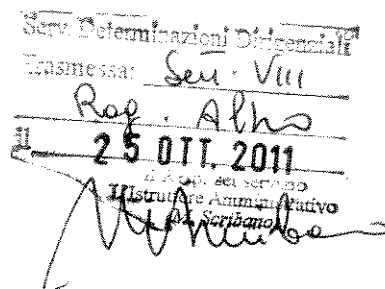 Serv. Determinazioni Dirigenziali
Trasmessa: Sett. VIII
Rag. Albo
lì 25 OTT. 2011
Il Resp. del servizio
L'Istruttore Amministrativo
(M. Scribano)